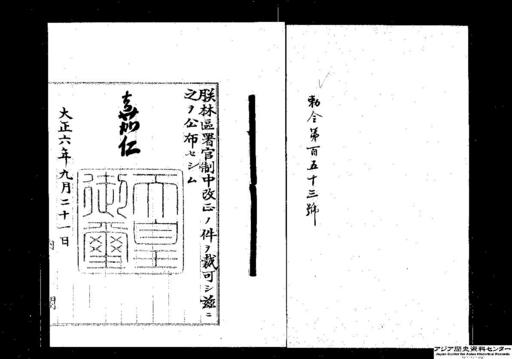 勅令第百五十三號
朕林區署官制中改正ノ件ヲ裁可シ茲ニ
之ヲ公布セシム
嘉仁
天皇
御璽
大正六年九月二十一日
内閣
アジア歴史資料センター
Japan Center for Asian Historical Records